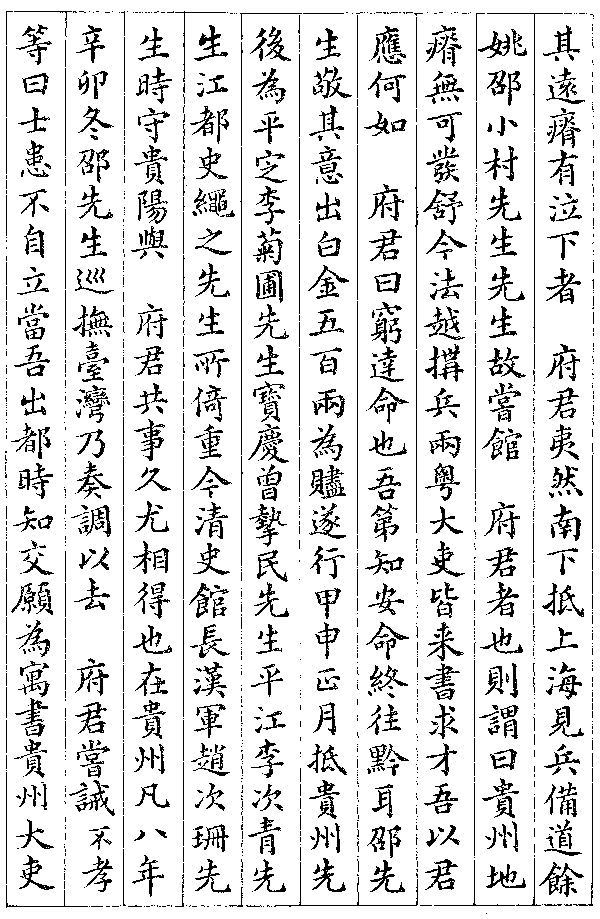 其遠瘠有泣下者　府君夷然南下抵上海見兵備道餘
姚邵小村先生先生故嘗館　府君者也則謂曰貴州地
瘠無可發舒今法越搆兵兩粵大吏皆来書求才吾以君
應何如　府君曰窮達命也吾第知安命終往黔耳邵先
生敬其意出白金五百兩為贐遂行甲申正月抵貴州先
後為平定李菊圃先生寶慶曾摯民先生平江李次青先
生江都史繩之先生所倚重今清史館長漢軍趙次珊先
生時守貴陽與　府君共事久尤相得也在貴州凡八年
辛卯冬邵先生巡撫臺灣乃奏調以去　府君嘗誡不孝
等曰士患不自立當吾出都時知交願為寓書貴州大吏